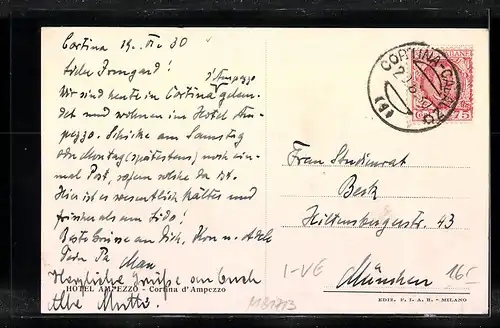 Cortina 19. VI. 30
Liebe Irmgard!
d'Ampezzo
Wir sind heute in Cortina gelan-
det und wohnen im Hotel Am-
pezzo. Schicke am Samstag
oder Montag (spätestens) noch ein-
mal Post, sofern welche da ist.
Hier ist es wesentlich kälter und
frischer als am Lido!
Beste Grüsse an Dich, u. Adele
Dein Pa
Herzliche Grüße an Euch
Alle Mutti!
HOTEL AMPEZZO - Cortina d'Ampezzo
CORTINA
75
Frau Studienrat
Beck
Hiltenspergerstr. 43
München
I-VE
16.-
EDIZ. F. I. A. B. - MILANO